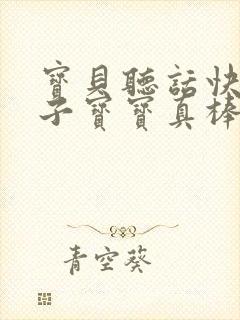 寶貝聽話快
子寶寶真棒
青空葵